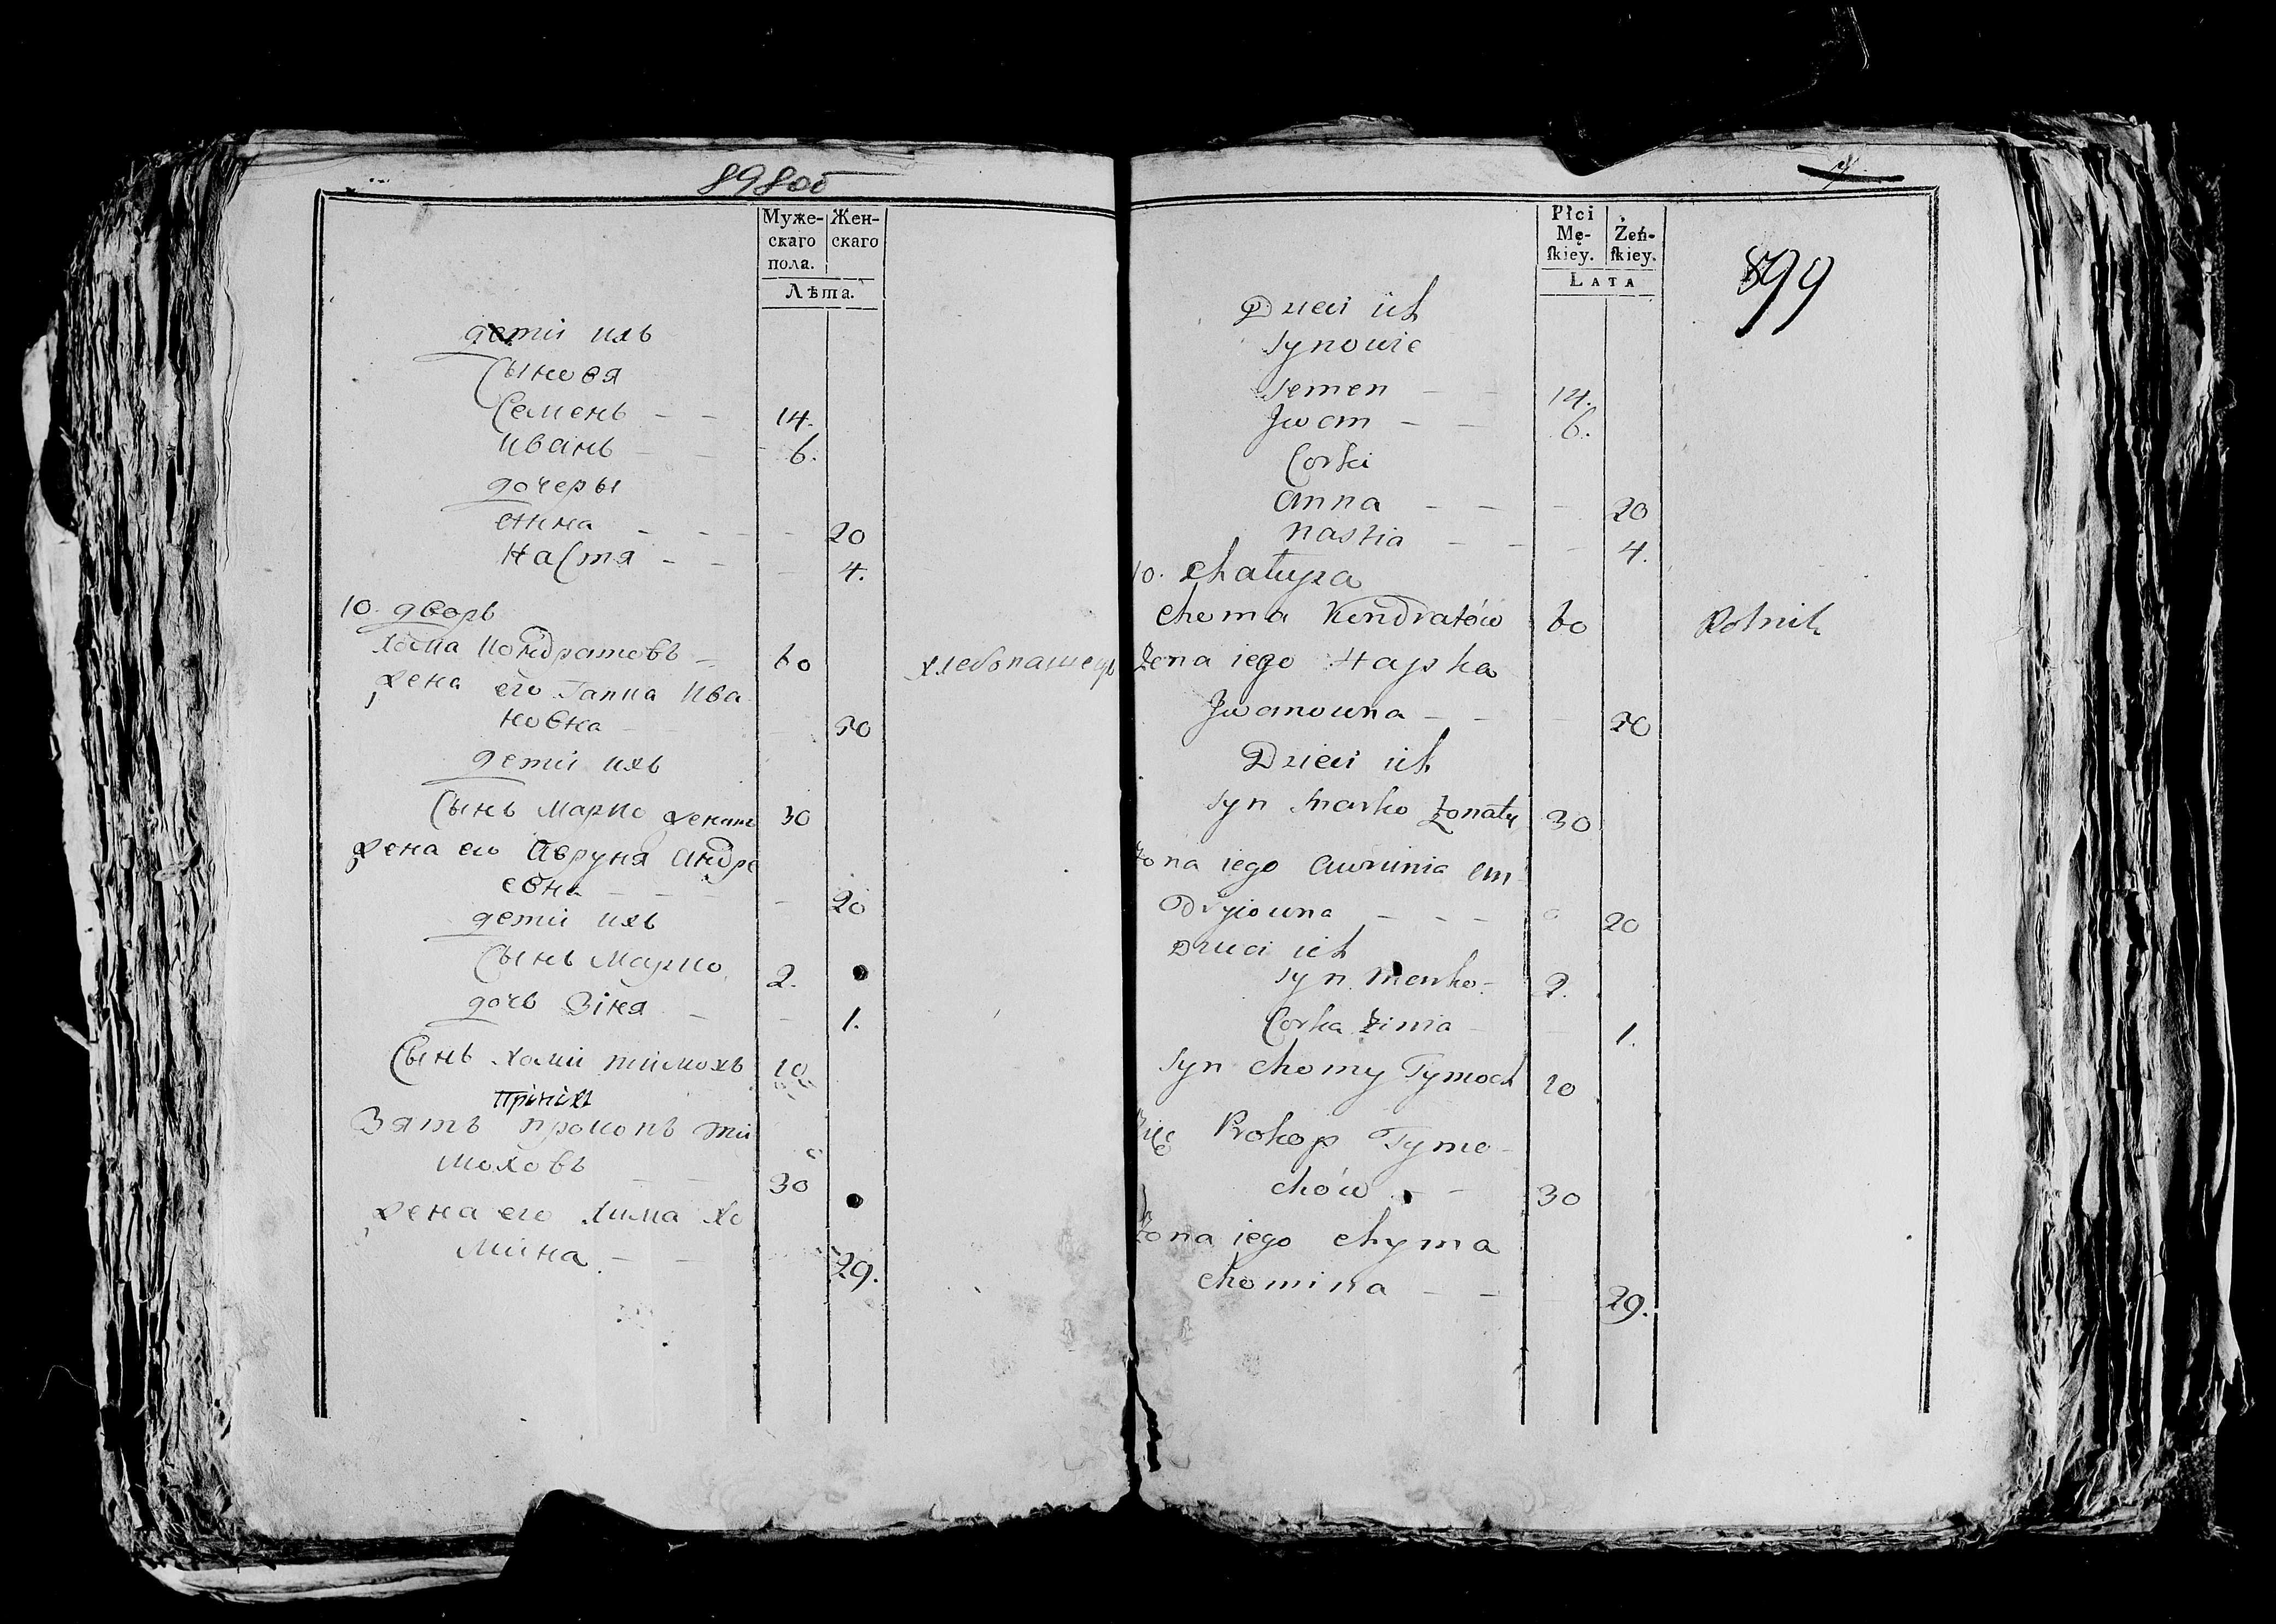 898об
Муже- Жен-
скаго скаго
пола.
Лѣта.
дети ихъ
Сыновя
Семенъ — — 14.
Иванъ — — 6.
дочеры
анна — — — — 20
Настя — — — 4.
10. дворъ
Хома Кондратовъ — 60 хлебопашецъ
жена его Гапка Ива
новна — 50
дети ихъ
Сынъ Марко женатъ 30
жена его Авруня Андре
евна — — — 20
дети ихъ
Сынъ Марко 2.
дочь Зіня — — 1.
Сынъ Хоми тимохъ 10
Зять прокопъ ти
моховъ — — 30
жена его Хима Хо
мина — — 29.
Płci
Mę- Żeń-
skiey. skiey.
Lata
899
Dzieci ich
Synowie
Semen — — 14.
Jwan — — 6.
Corki
anna — — — 20
nastia — — — 4.
10. Chałupa
Choma Kondratów 60 Rolnik
Żona iego Hapka
Jwanowna — — — 50
Dzieci ich
Syn Marko żonaty 30
Żona iego Awrunia An
Dryiowna — — — 20
Dzieci ich
Syn Marko — 2.
Corka Zinia — — 1.
Syn Chomy Tymoch 10
Zięć Prokop Tymo-
chów — — 30
Żona iego Chyma
Chomina — — 29.